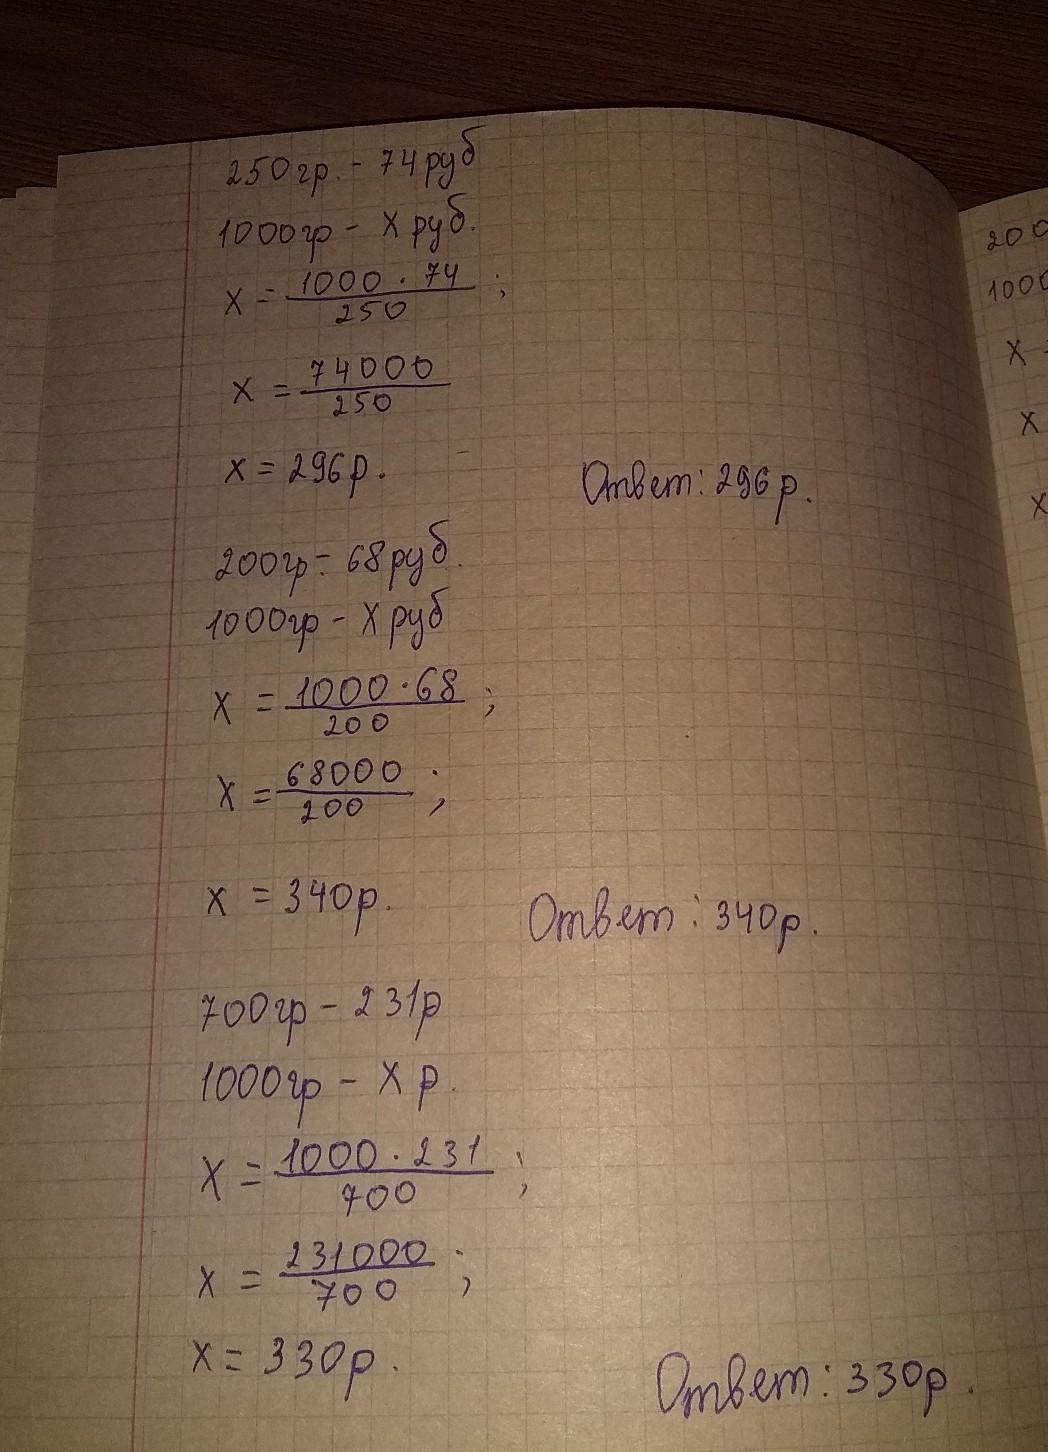 250гр. - 74руб
1000гр - х руб.
х = 1000 · 74 / 250 ;
х = 74000 / 250
х = 296р.
Ответ: 296р.
200гр - 68руб.
1000гр - х руб
х = 1000 · 68 / 200 ;
х = 68000 / 200 ;
х = 340р.
Ответ: 340р.
700гр - 231р
1000гр - х р.
х = 1000 · 231 / 700 ;
х = 231000 / 700 ;
х = 330р.
Ответ: 330р.
200
1000
х =
х
х